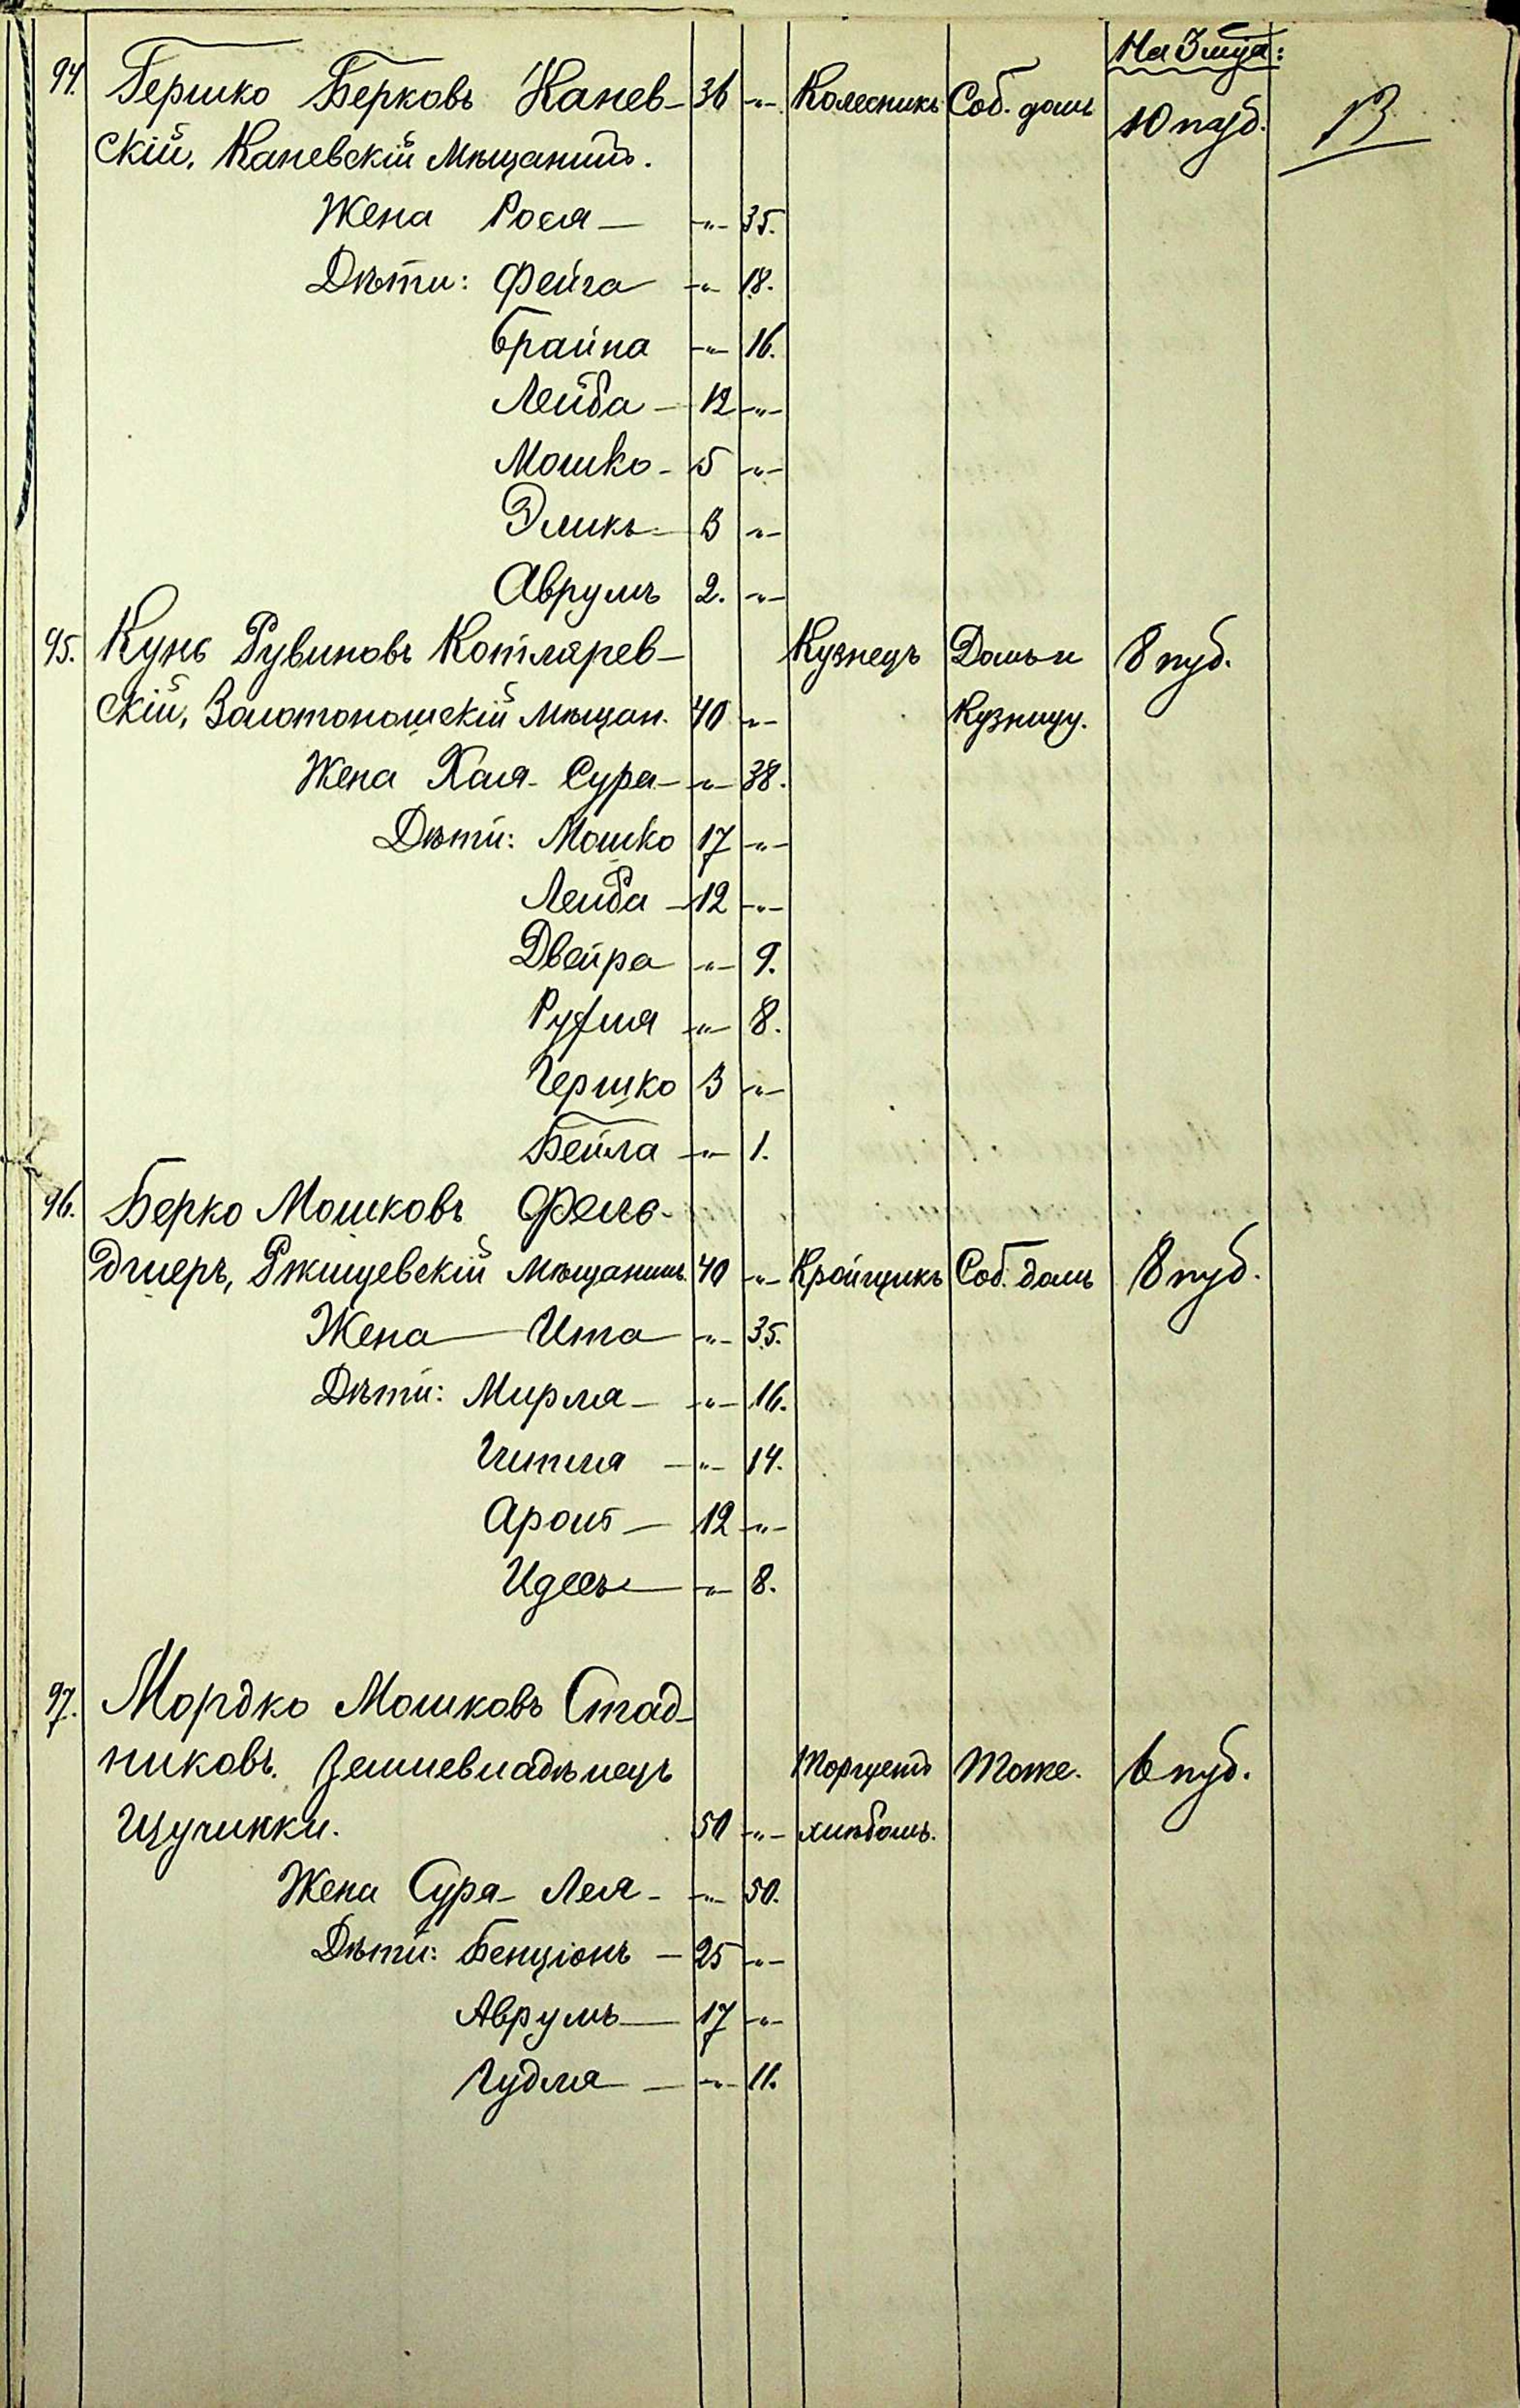 На 3 м-ца:
94. Гершко Берковъ Канев- 36 -"- Колесникъ Соб. домъ 10 пуд. 13
скій, Каневскій Мѣщанинъ.
Жена Рося — -"- 35.
Дѣти: Фейга -"- 18.
Брайна -"- 16.
Лейба - 12 -"-
Мошко - 5 -"-
Эликъ - 3 -"-
Аврумъ 2. -"-
95. Кунь Рувиновъ Котлярев- Кузнецъ Домъ и 8 пуд.
скій, Золотоношскій Мѣщан. 40 -"- Кузницу.
Жена Хая-Сура -"- 38.
Дѣти: Мошко 17 -"-
Лейба - 12 -"-
Двейра -"- 9.
-"- 8.
Гершко 3 -"-
Бейла -"- 1.
96. Берко Мошковъ Фель-
дшеръ, Ржищевскій Мѣщанинъ 40 -"- Кройщикъ Соб. домъ 8 пуд.
Жена — Ита -"- 35.
Дѣти: Мирля — -"- 16.
Гитля -"- 14.
Аронъ — 12 -"-
Идесъ — -"- 8.
97. Мордко Мошковъ Стад-
никовъ. Землевладѣлецъ Торгуетъ Тоже. 6 пуд.
Щучинки. 50 -"- хлѣбомъ.
Жена Сура-Лея - -"- 50.
Дѣти: Бенціонъ — 25 -"-
Аврумъ — 17 -"-
Гудля — -"- 11.